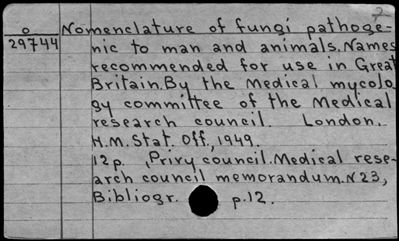 o Nomenclature of fungi pathoge-
29744 nic to man and animals. Names
recommended for use in Great
Britain. By the Medical mycolo
gy committee of the Medical
research council. London.
H.M. Stat. Off., 1949.
12 p. Privy council. Medical rese-
arch council memorandum. N 23,
Bibliogr. p. 12.